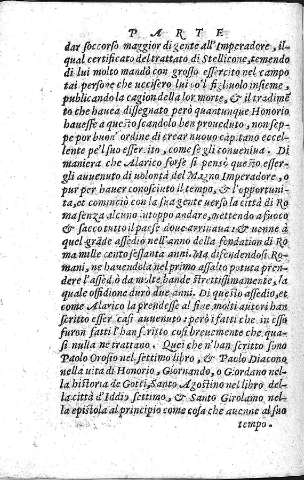 PARTE
dar soccorso maggior di gente all'Imperadore, il-
qual certificato del trattato di Stellicone, temendo
di lui molto mandò con grosso essercito nel campo
tai persone che uccisero lui co'l figliuolo insieme,
publicando la cagion della lor morte, & il tradimẽ
to che havea dissegnato però quantunque Honorio
havesse a questo scandolo ben proveduto, non sep-
pe por buon'ordine di crear nuovo capitano eccel-
lente pe'l suo essercito, come se gli conveniva. Di
maniera che Alarico forse si pensò questo esser-
gli avvenuto di volontà del Magno Imperadore, o
pur per haver conosciuto il tempo, & l'opportuni-
ta, et cominciò con la sua gente verso la città di Ro
ma senza alcuno intoppo andare, mettendo a fuoco
& sacco tutto il paese dove arrivava: & venne à
quel grãde assedio nell'anno della fondation di Ro
ma mille cento sessanta anni. Ma difendendosi Ro-
mani, ne havendola nel primo assalto potuta pren-
dere l'assediò da molte bande strettissimamente, la
quale ossidione durò due anni. Di questo assedio, et
come Alarico la prendesse al fine molti autori han
scritto esser casi avvenuto: però i fatti che in esso
furon fatti l'han scritto così brevemente che qua-
si nulla ne trattano. Quei che n'han scritto sono
Paolo Orosio nel settimo libro, & Paolo Diacono
nella vita di Honorio, Giornando, o Giordano nel-
la historia de Gotti, Santo Agostino nel libro del-
la città d'Iddio settimo, & Santo Girolamo nel-
la epistola al principio come cosa che avenne al suo
tempo.